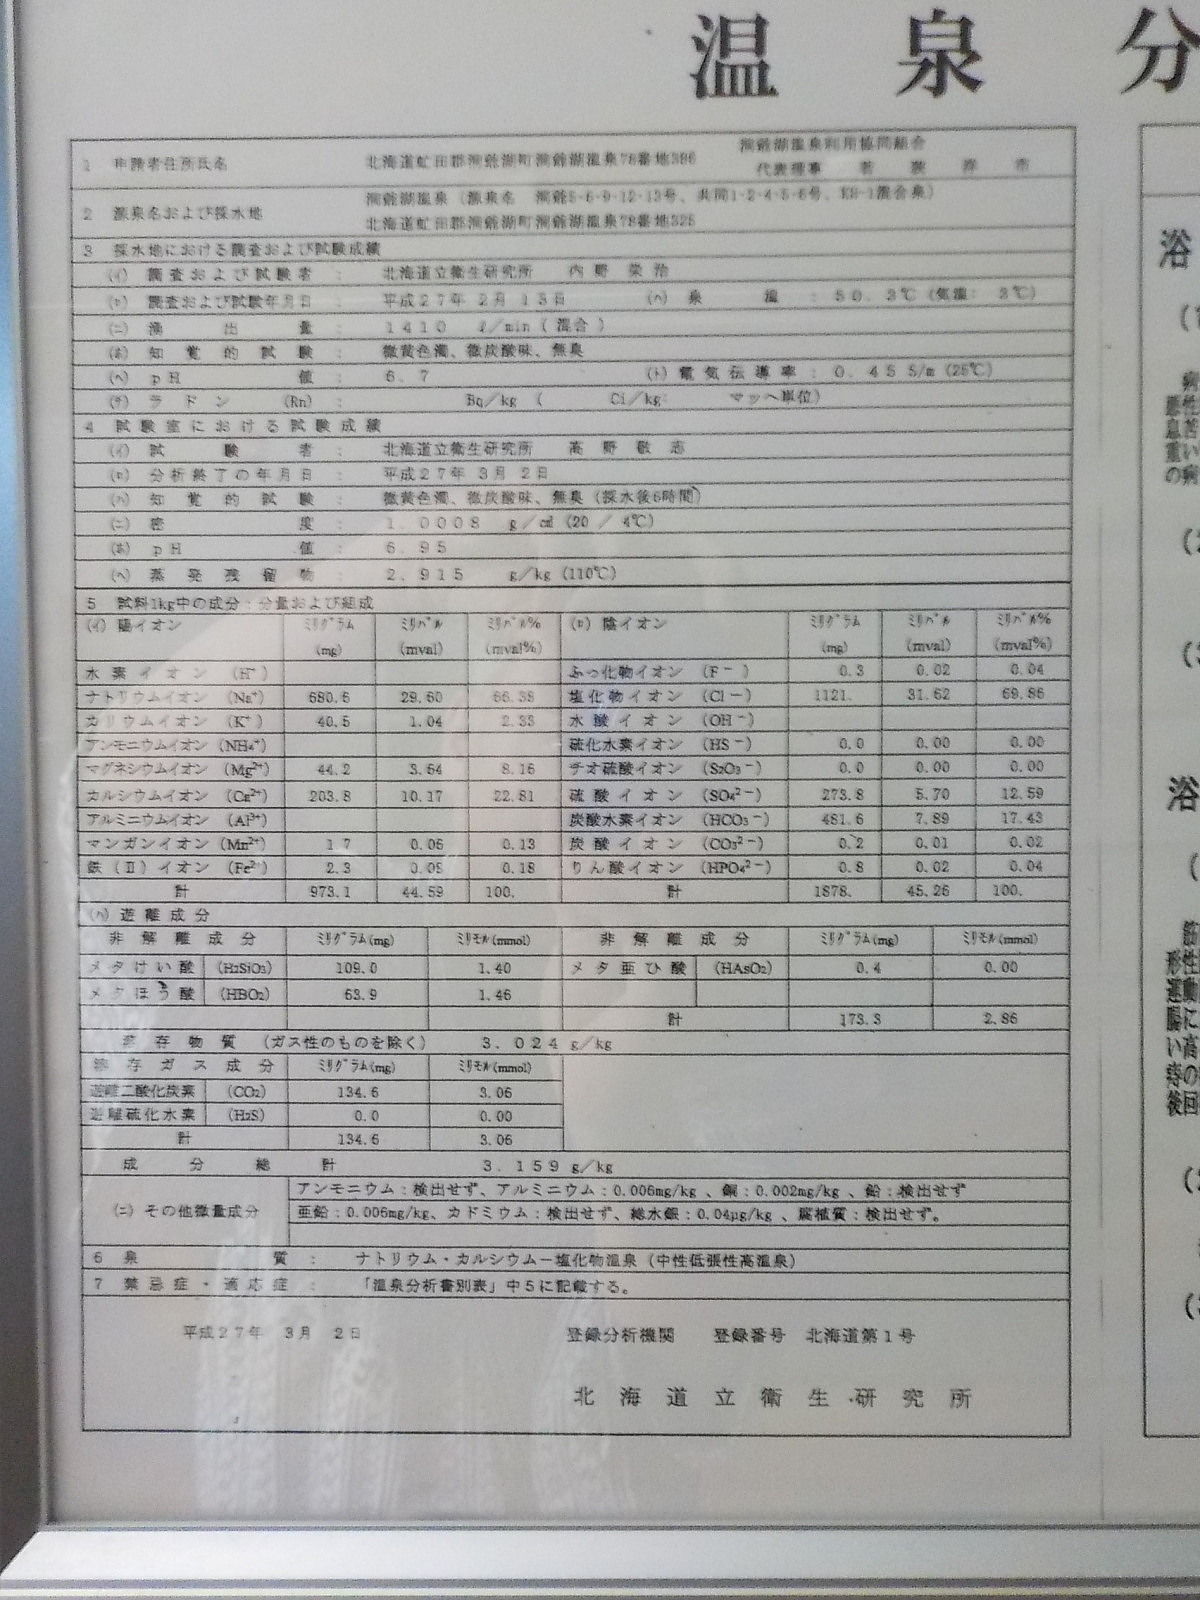 温泉分
1 申請者住所氏名 北海道虻田郡洞爺湖町洞爺湖温泉78番地386 洞爺湖温泉利用協同組合
代表理事 若
2 源泉名および採水地 洞爺湖温泉（源泉名 洞爺5-6-9-12-13号、共同1-2-4-5-6号、KH-1混合泉）
北海道虻田郡洞爺湖町洞爺湖温泉78番地325
3 採水地における調査および試験成績
(ｲ) 調査および試験者 : 北海道立衛生研究所 内野栄治
(ﾛ) 調査および試験年月日 : 平成27年 2月13日 (ﾊ) 泉温 : 50.3℃ (気温: 3℃)
(ﾆ) 湧出量 : 1410 ℓ/min (混合)
(ﾎ) 知覚的試験 : 微黄色濁、微炭酸味、無臭
(ﾍ) pH値 : 6.7 (ﾄ) 電気伝導率 : 0.455S/m (25℃)
(ﾁ) ラドン (Rn) : Bq/kg ( Ci/kg: マッヘ単位)
4 試験室における試験成績
(ｲ) 試験者 : 北海道立衛生研究所 高野敬志
(ﾛ) 分析終了の年月日 : 平成27年 3月 2日
(ﾊ) 知覚的試験 : 微黄色濁、微炭酸味、無臭 (採水後6時間)
(ﾆ) 密度 : 1.0008 g/c㎥ (20 / 4℃)
(ﾎ) pH値 : 6.95
(ﾍ) 蒸発残留物 : 2.915 g/kg (110℃)
5 試料1kg中の成分：分量および組成
(ｲ) 陽イオン ﾐﾘｸﾞﾗﾑ (mg) ﾐﾘﾊﾞﾙ (mval) ﾐﾘﾊﾞﾙ% (mval%) (ﾛ) 陰イオン ﾐﾘｸﾞﾗﾑ (mg) ﾐﾘﾊﾞﾙ (mval) ﾐﾘﾊﾞﾙ% (mval%)
水素イオン (H⁺) ふっ化物イオン (F⁻) 0.3 0.02 0.04
ナトリウムイオン (Na⁺) 680.6 29.60 66.38 塩化物イオン (Cl⁻) 1121. 31.62 69.86
カリウムイオン (K⁺) 40.5 1.04 2.33 水酸イオン (OH⁻)
アンモニウムイオン (NH₄⁺) 硫化水素イオン (HS⁻) 0.0 0.00 0.00
マグネシウムイオン (Mg²⁺) 44.2 3.64 8.16 チオ硫酸イオン (S₂O₃⁻) 0.0 0.00 0.00
カルシウムイオン (Ca²⁺) 203.8 10.17 22.81 硫酸イオン (SO₄²⁻) 273.8 5.70 12.59
アルミニウムイオン (Al³⁺) 炭酸水素イオン (HCO₃⁻) 481.6 7.89 17.43
マンガンイオン (Mn²⁺) 1.7 0.06 0.13 炭酸イオン (CO₃²⁻) 0.2 0.01 0.02
鉄(Ⅱ)イオン (Fe²⁺) 2.3 0.08 0.18 りん酸イオン (HPO₄²⁻) 0.8 0.02 0.04
計 973.1 44.59 100. 計 1878. 45.26 100.
(ﾊ) 遊離成分
非解離成分 ﾐﾘｸﾞﾗﾑ(mg) ﾐﾘﾓﾙ(mmol) 非解離成分 ﾐﾘｸﾞﾗﾑ(mg) ﾐﾘﾓﾙ(mmol)
メタけい酸 (H₂SiO₃) 109.0 1.40 メタ亜ひ酸 (HAsO₂) 0.4 0.00
メタほう酸 (HBO₂) 63.9 1.46
計 173.3 2.86
溶存物質 (ガス性のものを除く) 3.024 g/kg
溶存ガス成分 ﾐﾘｸﾞﾗﾑ(mg) ﾐﾘﾓﾙ(mmol)
遊離二酸化炭素 (CO₂) 134.6 3.06
遊離硫化水素 (H₂S) 0.0 0.00
計 134.6 3.06
成分総計 3.159 g/kg
(ﾆ) その他微量成分 アンモニウム：検出せず、アルミニウム：0.006mg/kg 、銅：0.002mg/kg 、鉛：検出せず
亜鉛：0.006mg/kg、カドミウム：検出せず、総水銀：0.04μg/kg 、腐植質：検出せず。
6 泉質 : ナトリウム・カルシウム－塩化物温泉 (中性低張性高温泉)
7 禁忌症・適応症 : 「温泉分析書別表」中5に記載する。
平成27年 3月 2日 登録分析機関 登録番号 北海道第1号
北海道立衛生研究所
浴
(1
病
悪性
息苦
重い
の病
(2
(3
浴
(
筋
形性
運動
腸に
い高
痔の
後回
(2
(3